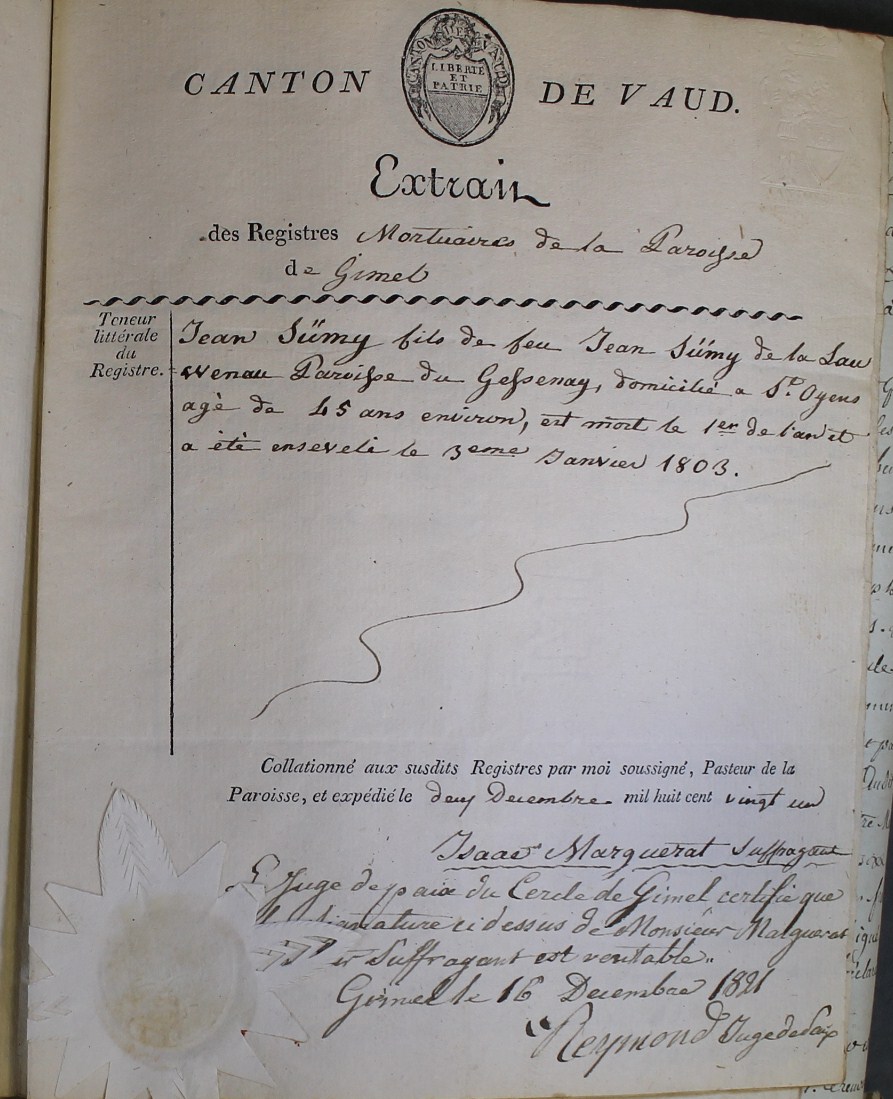 CANTON DE VAUD.
CANTON DE VAUD
LIBERTÉ
ET
PATRIE
Extrait
des Registres Mortuaires de la Paroisse
de Gimel
Teneur
littérale
du
Registre.
Jean Sümy fils de feu Jean Sümy de la Lau
wenau Paroisse du Gessenay, domicilié a St. Oyens
agé de 45 ans environ, est mort le 1er de l'an et
a été enseveli le 3eme Janvier 1803.
Collationné aux susdits Registres par moi soussigné, Pasteur de la
Paroisse, et expédié le deux Decembre mil huit cent vingt un
Isaac Marguerat Suffragant
Juge de paix du Cercle de Gimel certifie que
signature ci dessus de Monsieur Marguerat
Suffragant est veritable.
Gimel le 16 Decembre 1821
Reymond Juge de Paix